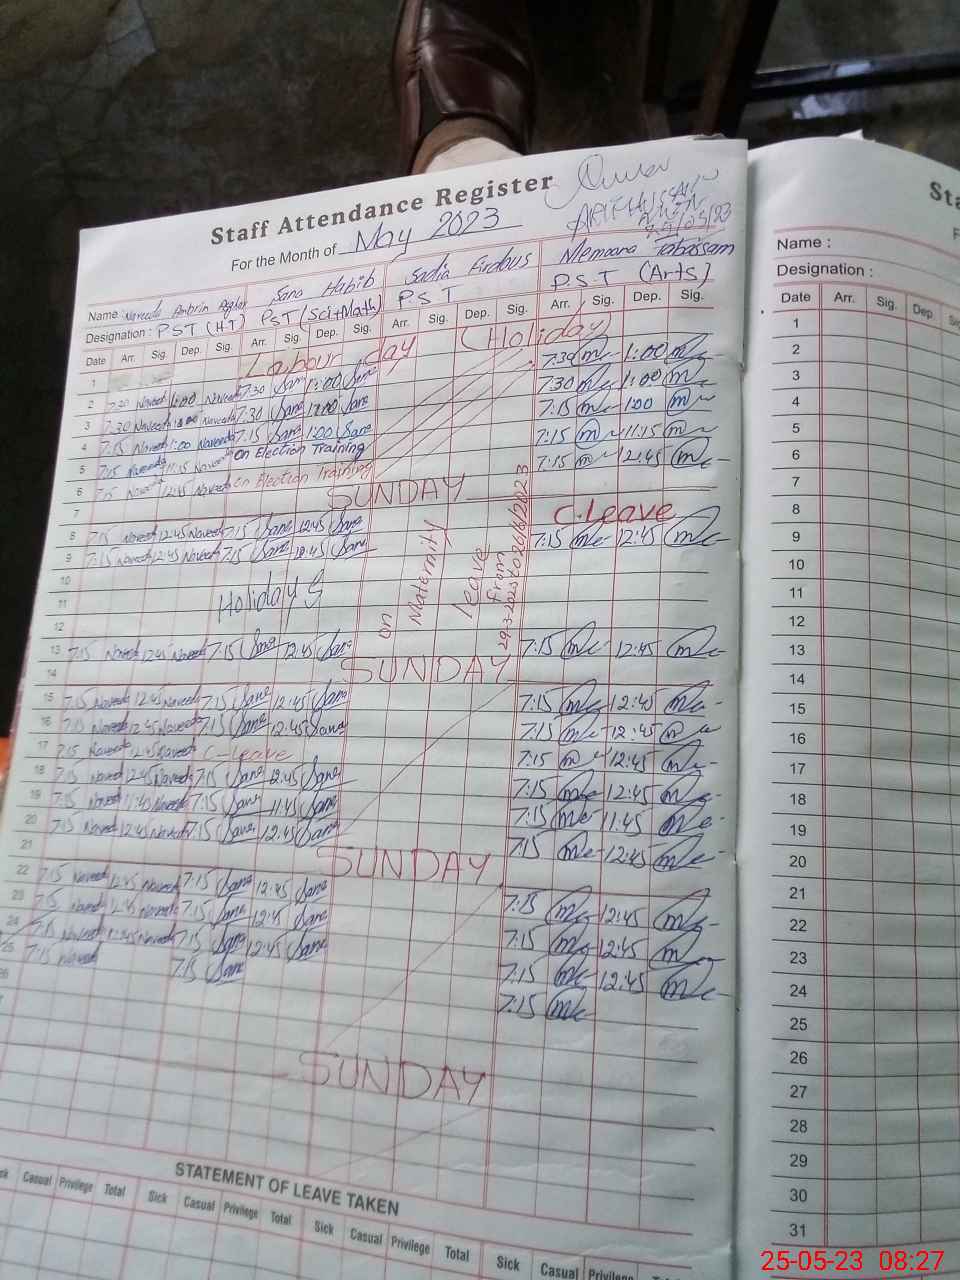 Staff Attendance Register
For the Month of May 2023
Name: Naveeda Ambrin Sana Habib Sadia Firdous Memoona Tabassam
Designation: PST (H.T) PST (Sci+Math) P.S.T P.S.T (Arts)
Date Arr. Sig. Dep. Sig. Arr. Sig. Dep. Sig. Arr. Sig. Dep. Sig. Arr. Sig. Dep. Sig.
1 Labour day (Holiday)
2 7:30 Naveeda 1:00 Naveeda 7:30 Sana 1:00 Sana 7:30 1:00
3 7:30 Naveeda 1:00 Naveeda 7:30 Sana 1:00 Sana 7:30 1:00
4 7:15 Naveeda 1:00 Naveeda 7:15 Sana 1:00 Sana 7:15 1:00
5 7:15 Naveeda 11:15 Naveeda on Election Training 7:15 11:15
6 7:15 Naveeda 12:45 Naveeda on Election Training 7:15 12:45
7 SUNDAY
8 7:15 Naveeda 12:45 Naveeda 7:15 Sana 12:45 Sana C.Leave
9 7:15 Naveeda 12:45 Naveeda 7:15 Sana 12:45 Sana 7:15 12:45
10
11 Holidays
12
on Maternity leave from 29-3-2023 to 26/6/2023
13 7:15 Naveeda 12:45 Naveeda 7:15 Sana 12:45 Sana 7:15 12:45
14 SUNDAY
15 7:15 Naveeda 12:45 Naveeda 7:15 Sana 12:45 Sana 7:15 12:45
16 7:15 Naveeda 12:45 Naveeda 7:15 Sana 12:45 Sana 7:15 12:45
17 7:15 Naveeda 12:45 Naveeda C-Leave 7:15 12:45
18 7:15 Naveeda 12:45 Naveeda 7:15 Sana 12:45 Sana 7:15 12:45
19 7:15 Naveeda 11:45 Naveeda 7:15 Sana 11:45 Sana 7:15 11:45
20 7:15 Naveeda 12:45 Naveeda 7:15 Sana 12:45 Sana 7:15 12:45
21 SUNDAY
22 7:15 Naveeda 12:45 Naveeda 7:15 Sana 12:45 Sana 7:15 12:45
23 7:15 Naveeda 12:45 Naveeda 7:15 Sana 12:45 Sana 7:15 12:45
24 7:15 Naveeda 12:45 Naveeda 7:15 Sana 12:45 Sana 7:15 12:45
25 7:15 Naveeda 7:15 Sana 7:15
SUNDAY
STATEMENT OF LEAVE TAKEN
Casual Privilege Total Sick Casual Privilege Total Sick Casual Privilege Total Sick Casual Privilege
Name :
Designation :
Date Arr. Sig. Dep.
1
2
3
4
5
6
7
8
9
10
11
12
13
14
15
16
17
18
19
20
21
22
23
24
25
26
27
28
29
30
31
25-05-23 08:27